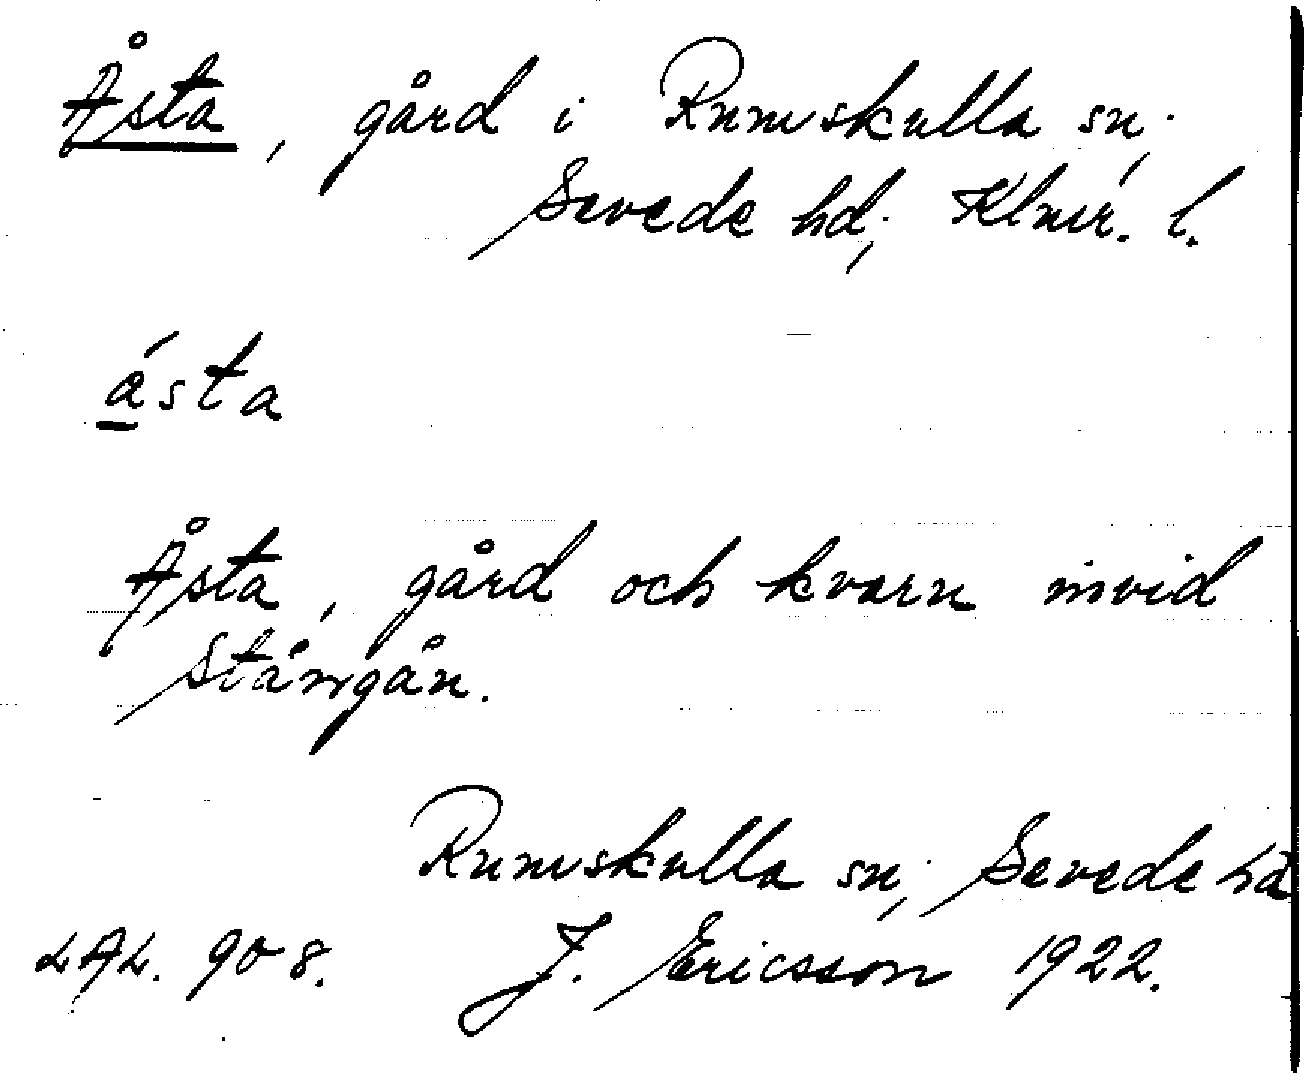 Åsta, gård i Rumskulla sn;
Sevede hd; Klmr. l.
ásta
Åsta, gård och kvarn invid
Stångån.
Rumskulla sn; Sevede hd
LAL. 908. J. Ericsson 1922.